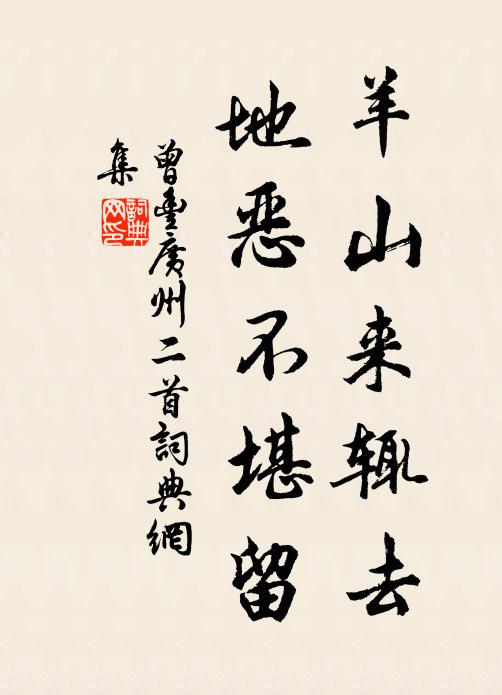 羊山来辄去
地恶不堪留
曾豊廣州二首詞典網
集
詞典网印